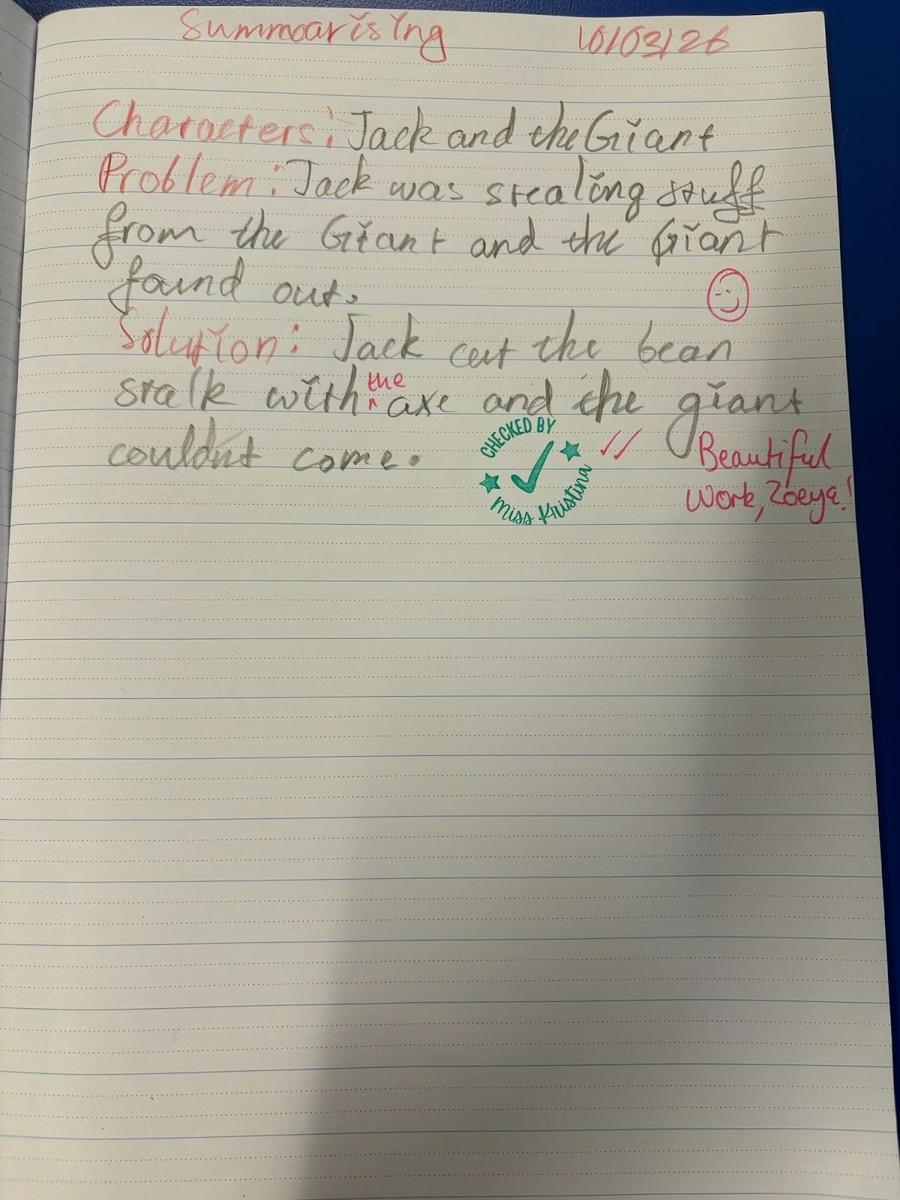 Summarising 10/03/26
Characters: Jack and the Giant
Problem: Jack was stealing stuff
from the Giant and the Giant
found out.
Solution: Jack cut the bean
stalk with the axe and the giant
couldnt come.
CHECKED BY
Miss Kristina
Beautiful
Work, Zoeya!